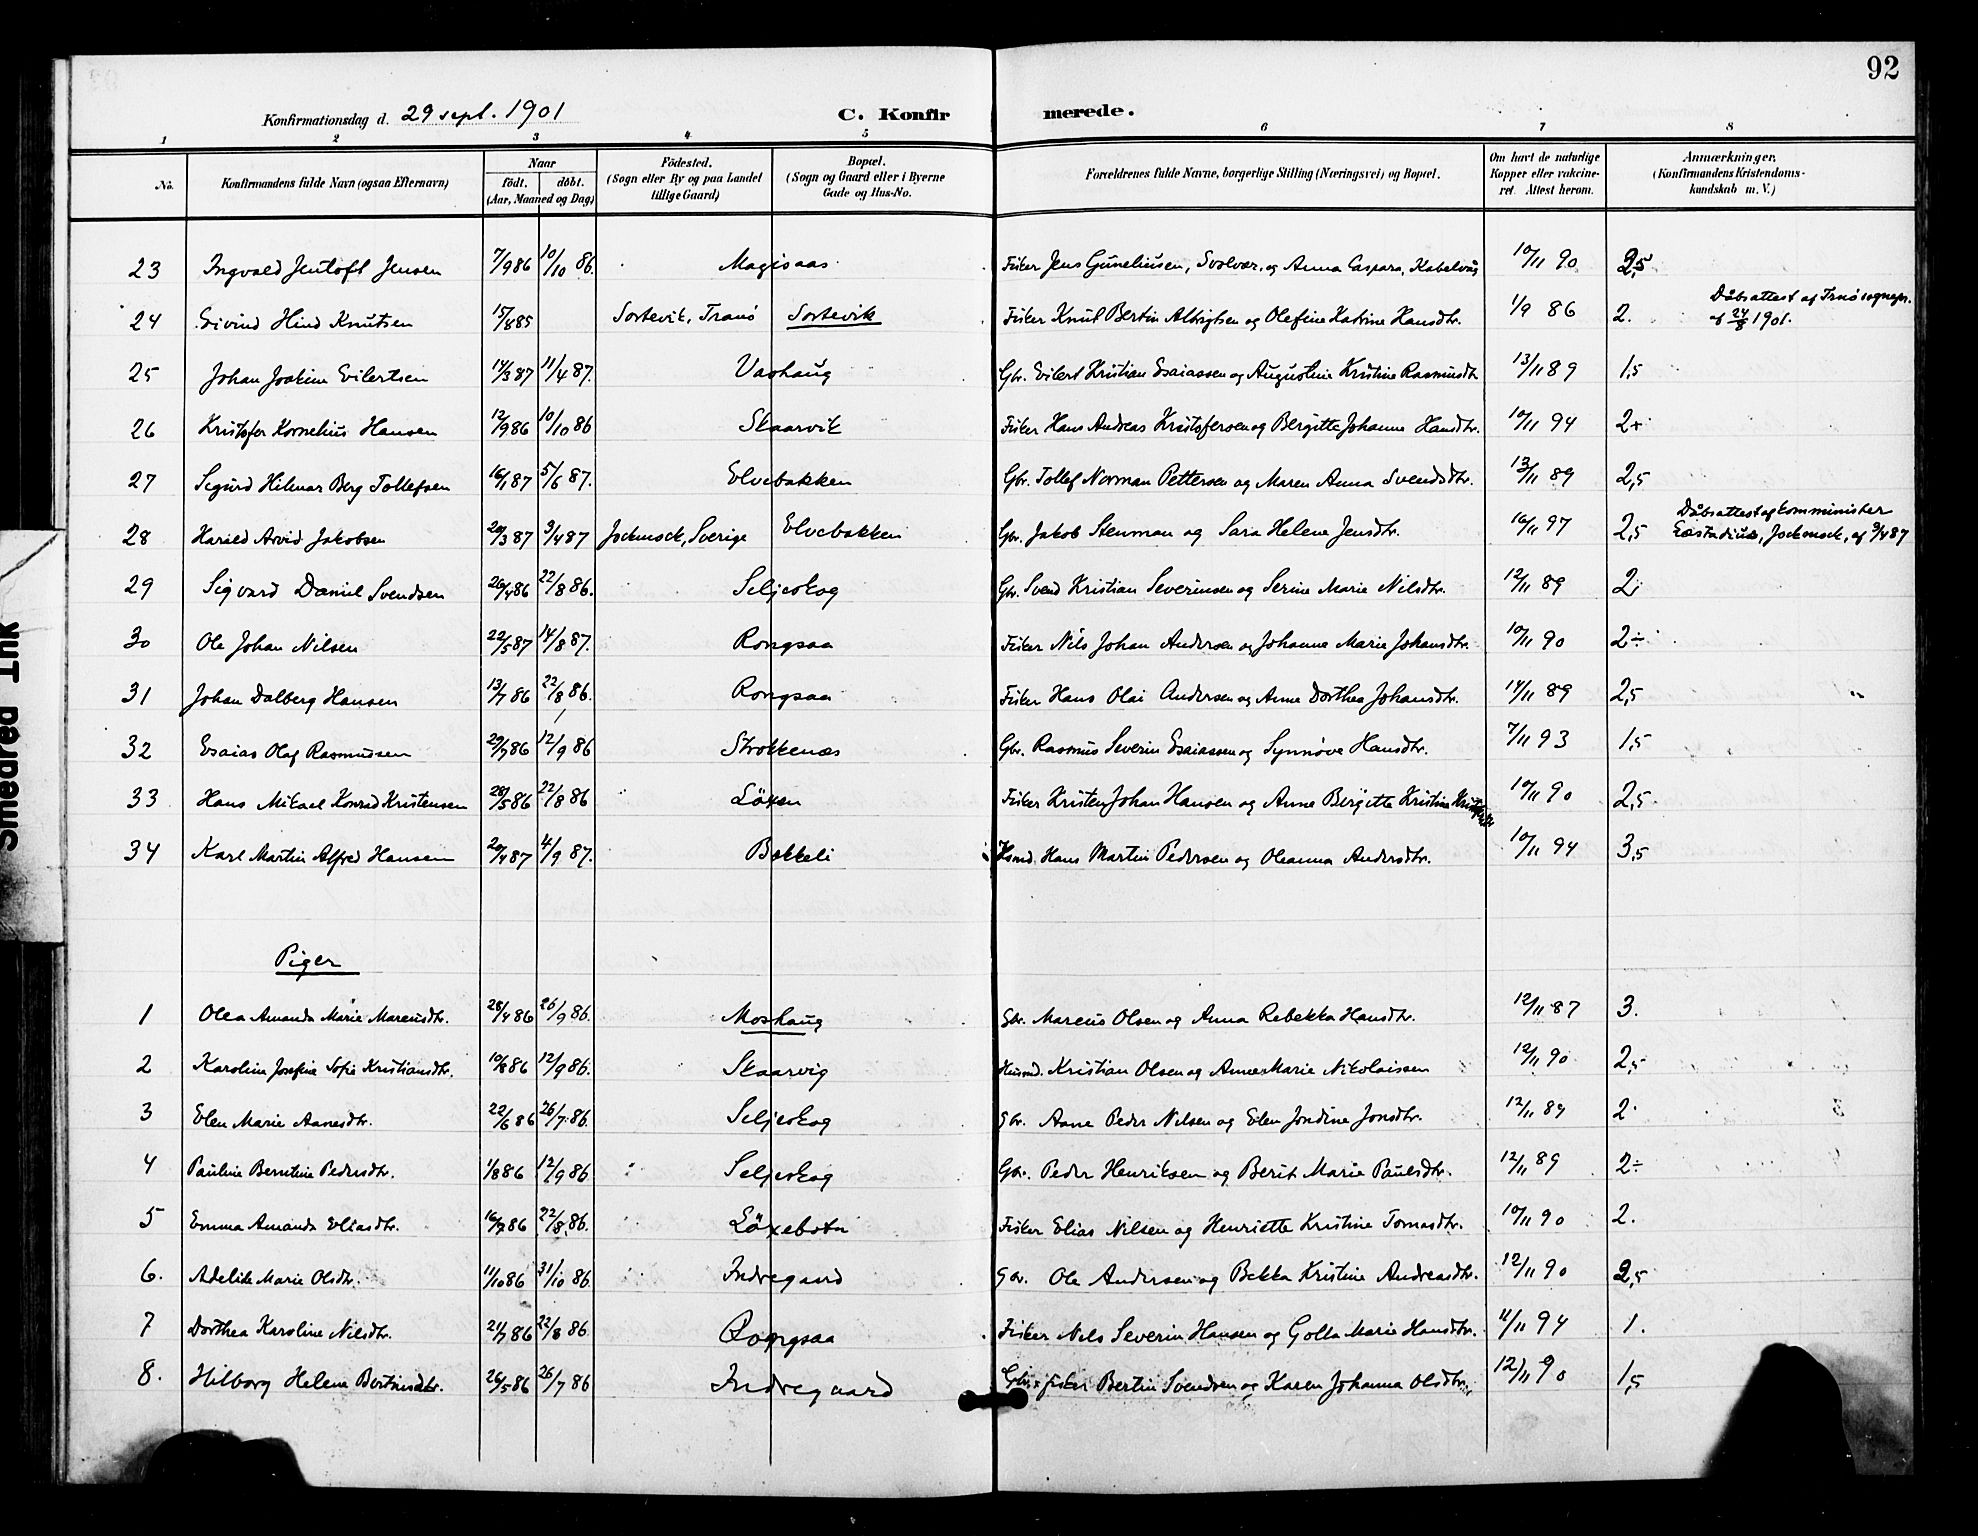 92
Konfirmationsdag d. 29 sept. 1901 C. Konfirmerede.
1 2 3 4 5 6 7 8
No. Konfirmandens fulde Navn (ogsaa Efternavn) Naar födt. döbt. (Aar, Maaned og Dag) Födested. (Sogn eller By og paa Landet tillige Gaard) Bopæl. (Sogn og Gaard eller i Byerne Gade og Hus-No. Forældrenes fulde Navne, borgerlige Stilling (Næringsvei) og Bopæl. Om havt de naturlige Kopper eller vakcineret. Attest herom. Anmærkninger. (Konfirmandens Kristendomskundskab m. V.)
23 Ingvald Jentoft Jensen 7/9 86 10/10 86. Magisaas Fisker Jens Guneliusen, Svolvær, og Anna Caspara, Kabelvåg 10/11 90 2,5
24 Eivind Hind Knutsen 15/8 85 Sortevik, Tranö Sortevik Fisker Knut Bertin Albrigtsen og Olefine Katrine Hansdtr. 1/9 86 2. Dåbsattest af Tranö sognepr. af 24/8 1901.
25 Johan Joakim Eilertsen 14/3 87 11/4 87. Vashaug Gbr. Eilert Kristian Esaiassen og Augustine Kristine Rasmusdtr 13/11 89 1,5
26 Kristofer Kornelius Hansen 12/9 86 10/10 86 Skaarvik Fisker Hans Andreas Kristofersen og Bergitte Johanne Hansdtr. 10/11 94 2+
27 Sigurd Hilmar Berg Tollefsen 16/1 87 5/6 87. Elvebakken Gbr. Tollef Norman Pettersen og Maren Anna Svendsdtr. 13/11 89 2,5
28 Harald Arvid Jakobsen 20/3 87 3/4 87 Jockmock, Sverige Elvebakken Gbr. Jakob Stenman og Sara Helene Jensdtr. 16/11 97 2,5 Dåbsattest af komminister Læstadius, Jockmock, af 9/4 87
29 Sigvard Daniel Svendsen 26/4 86 22/8 86. Seljeskog Gbr. Svend Kristian Severinsen og Serine Marie Nilsdtr. 12/11 89 2
30 Ole Johan Nilsen 22/5 87 14/8 87. Rongsaa Fisker Nils Johan Andersen og Johanne Marie Johansdtr. 10/11 90 2÷
31 Johan Dalberg Hansen 13/7 86 22/8 86. Rongsaa Fisker Hans Olai Andersen og Anne Dorthea Johansdtr. 14/11 89 2,5
32 Esaias Olaf Rasmussen 29/7 86 12/9 86 Strokkenæs Gbr. Rasmus Severin Esaiassen og Synnöve Hansdtr. 7/11 93 1,5
33 Hans Mikael Konrad Kristensen 28/5 86 22/8 86 Löxen Fisker Kristen Johan Hansen og Anne Bergitte Kristine 10/11 90 2,5
34 Karl Martin Alfred Hansen 20/4 87 4/9 87. Bakkeli Husmd. Hans Martin Pedersen og Oleanna Andersdtr. 10/11 94 3,5
Piger
1 Olea Amanda Marie Mareusdtr. 28/4 86 26/9 86. Moshaug Gbr. Mareus Olsen og Anna Rebekka Hansdtr. 12/11 87 3.
2 Karoline Josefine Sofie Kristiansdtr. 10/8 86 12/9 86. Skaarvig Husmd. Kristian Olsen og Anne Marie Nikolaissen 12/11 90 2,5
3 Elen Marie Aanesdtr. 22/6 86 26/7 86. Seljeskog Gbr. Aane Peder Nilsen og Elen Jondine Jonsdtr. 12/11 89 2
4 Pauline Berntine Pedersdtr. 1/8 86 12/9 86. Seljeskog Gbr. Peder Henriksen og Berit Marie Paulsdtr. 12/11 89 2÷
5 Emma Amanda Eliasdtr. 16/7 86 22/8 86. Löxebotn Fisker Elias Nilsen og Henriette Kristine Tomasdtr. 10/11 90 2.
6. Adelide Marie Olsdtr. 11/10 86 31/10 86. Indregaard Gbr. Ole Andersen og Bekka Kristine Andreasdtr. 12/11 90 2,5
7 Dorthea Karoline Nilsdtr. 21/7 86 22/8 86. Rongsaa Fisker Nils Severin Hansen og Golla Marie Hansdtr. 11/11 94 1.
8. Hilborg Helene Bertinsdtr. 26/5 86 26/7 86 Indregaard Gbr. & fisker Bertin Svendsen og Karen Johanna Olsdtr. 12/11 90 1,5